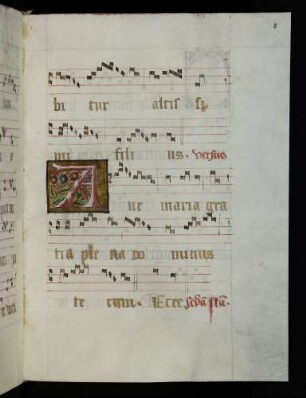 bi tur altis si
mi fili us. versus
A ue maria gra
tia ple na do minus
te cum. Ecce